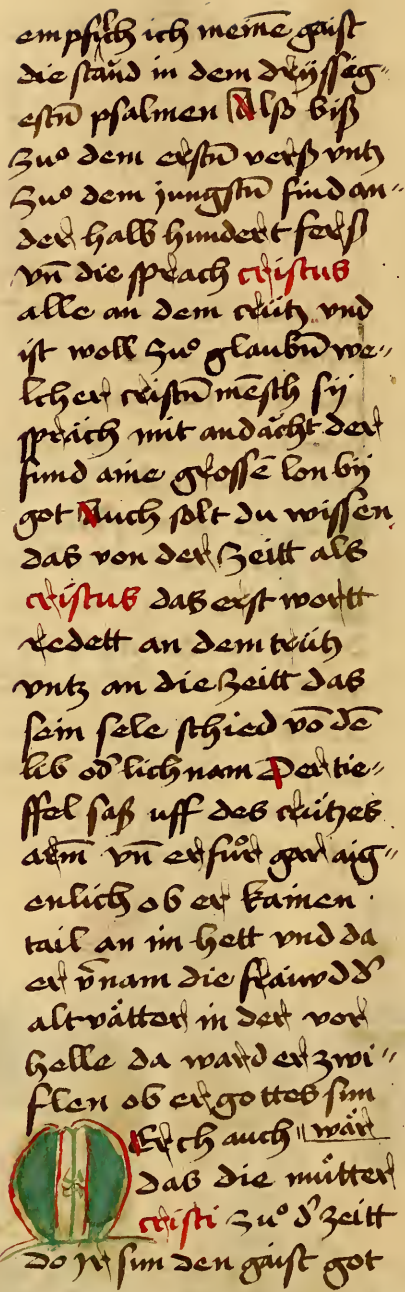 empfilch ich meinē gaist
die ſtaͤnd in dem dryſſeg⸗
eſtn̄ pſalmen Alſo biß
Zuͦ dem erſtn̄ verß vntz
Zuͦ dem jungſtn̄ ſind an⸗
der halb hundert ferß
vn̄ die ſprach criſtus
alle an dem crütz vnd
iſt woll Zuͦ glaubn̄ we⸗
lcher criſtn̄ mēſch ſy
ſpraͤch mit andaͤcht der
fund aine groſſē lon by
got Auch ſolt du wiſſen
das von der Zeitt als
criſtus das erſt wortt
redett an dem crütz
vntz an die Zeitt das
ſein ſele ſchied vō dē
lib od̓ lichnam Der tie⸗
ffel ſaß uff des crützes
arm̄ vn̄ er fuͦr gar aig⸗
enlich ob er kainen
tail an im hett vnd da
er v̄nam die fraͤuwd d̓
altvaͤtter in der vor
helle da ward er zwi⸗
flen ob er gottes ſun
waͤr
MErch auch
das die muͤtter
criſti Zuͦ d̓ zeitt
do Jr ſun den gaiſt got